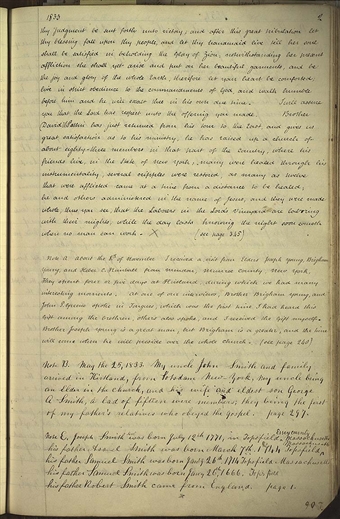 1833
thy judgment be set forth unto victory, and after this great tribulation let
thy blessing fall upon thy people, and let thy handmaid live till her soul
shall be satisfied in beholding the glory of Zion; notwithstanding her present
affliction she shall yet arise and put on her beautiful garments, and be
the joy and glory of the whole Earth, therefore let your heart be comforted;
live in strict obedience to the commandments of God and walk humbly
before him and he will exalt thee in his own due time. I will assure
you that the Lord has respect unto the offering you made. Brother
David W Patten has just returned from his tour to the east and gives us
great satisfaction as to his ministry, he has raised up a church of
about eighty-three members in that part of the country, where his
friends live, in the State of New York; many were healed through his
instrumentality, several cripples were restored as many as twelve
that were afflicted came at a time from a distance to be healed;
he and others administered in the name of Jesus, and they were made
whole, thus you see, that the laborers in the Lord's vineyard are laboring
with their mights, while the day lasts knowing the night soon cometh
when no man can work. X (see page 345)
Note A. about the 8th of November I received a visit from Elders Joseph Young, Brigham
Young, and Heber C. Kimball from Mendon, Monroe county New York.
They spent four or five days at Kirtland, during which we had many
interesting moments; at one of our interviews, Brother Brigham Young, and
John P. Greene spoke in Tongues, which was the first time I had heard this
Gift among the brethren, others also spoke, and I received the Gift myself.
Brother Joseph Young is a great man, but Brigham is a greater, and the time
will come when he will preside over the whole church. (see page 240)
Note B. May the 25, 1833. My uncle John Smith and family
arrived in Kirtland, from Potsdam New-York, My uncle being
an Elder in the church, and his wife and eldest son George
A Smith, a lad of fifteen were members; they being the first
of my father's relatives who obeyed the gospel. page 297.
Note C, Joseph Smith was born July 12th 1771, in Topsfield, Massachusetts
his father Asael Smith was born March 7th 1744 Topsfield,
his father Samuel Smith was born Jany 26th 1714 Topsfield Massachusetts
his father Samuel Smith was born Jany 26th 1666. Topsfield
his father Robert Smith came from England. page 1.